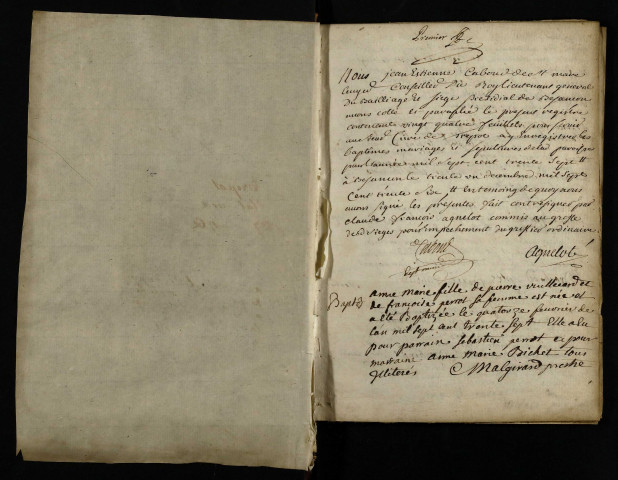 Premier
Nous jean Estienne Caboud de St marc
Ecuyer Conseiller du Roy Lieutenant general
du Bailliage et siege presidial de Besancon
avons cotté et paraphé le present registre
contenant vingt quatre feuillets pour servir
au Sieur Curé de a y Enregistrer les
baptêmes mariages et sepultures de la paroisse
pour l'année mil Sept cent trente Sept
à Besancon le trente un decembre mil Sept
Cent trente Six Et en temoing de quoy avons
avons signé les presentes fait contresigner par
claude françois agnelot commis au greffe
desd sieges pour empechement du greffier ordinaire
agnelot
Bapt
anne marie fille de pierre vuilliard et
de françoise perrot sa femme est née et
a été Baptizée le quatorze feuvrier de
lan mil sept cent trente sept Elle a eu
pour parrain sebastien perrot et pour
marraine anne marie Bichet tous
illiterés C Malgirard prestre